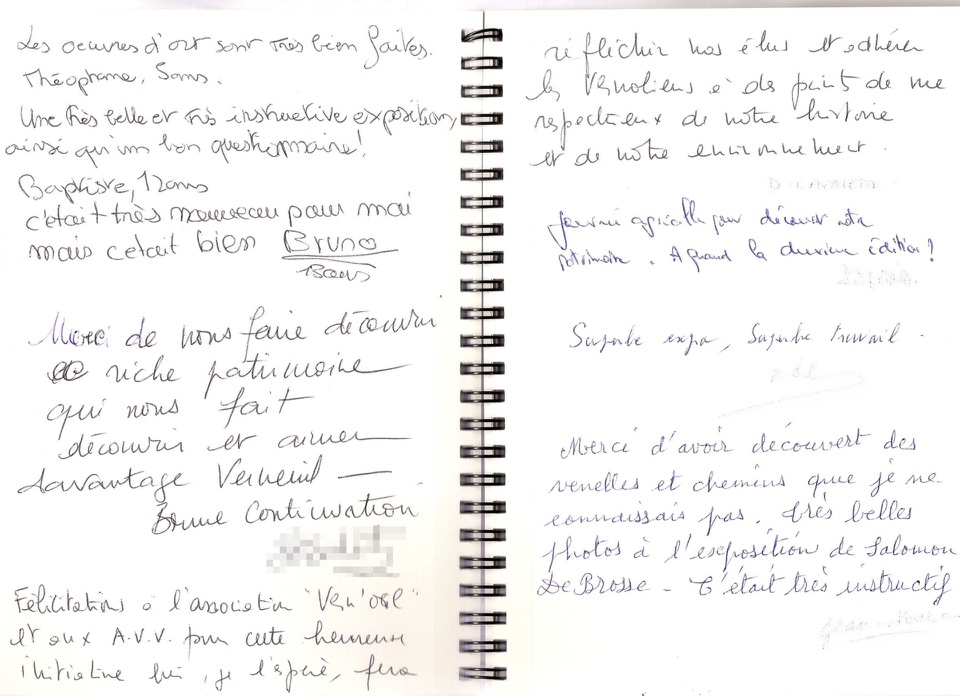 Les oeuvres d'art sont très bien faites.
Théophane, 5ans.
Une très belle et très instructive exposition,
ainsi qu'un bon questionnaire!
Baptiste, 12ans
c'était très nouveau pour moi
mais cetait bien Bruno
13ans
Merci de nous faire découvrir
ce riche patrimoine
qui nous fait
découvrir et aimer
davantage Verneuil —
Bonne Continuation
Félicitations à l'association "Vern'oeil"
et aux A.V.V. pour cette heureuse
initiative qui, je l'espère, fera
réfléchir nos élus et adhérer
les Vernoliens à des points de vue
respectueux de notre histoire
et de notre environnement.
Journée agréable pour découvrir notre
patrimoine. A quand la deuxième édition!
Superbe expo, Superbe travail.
Merci d'avoir découvert des
venelles et chemins que je ne
connaissais pas. très belles
photos à l'exposition de Salomon
De Brosse - C'était très instructif